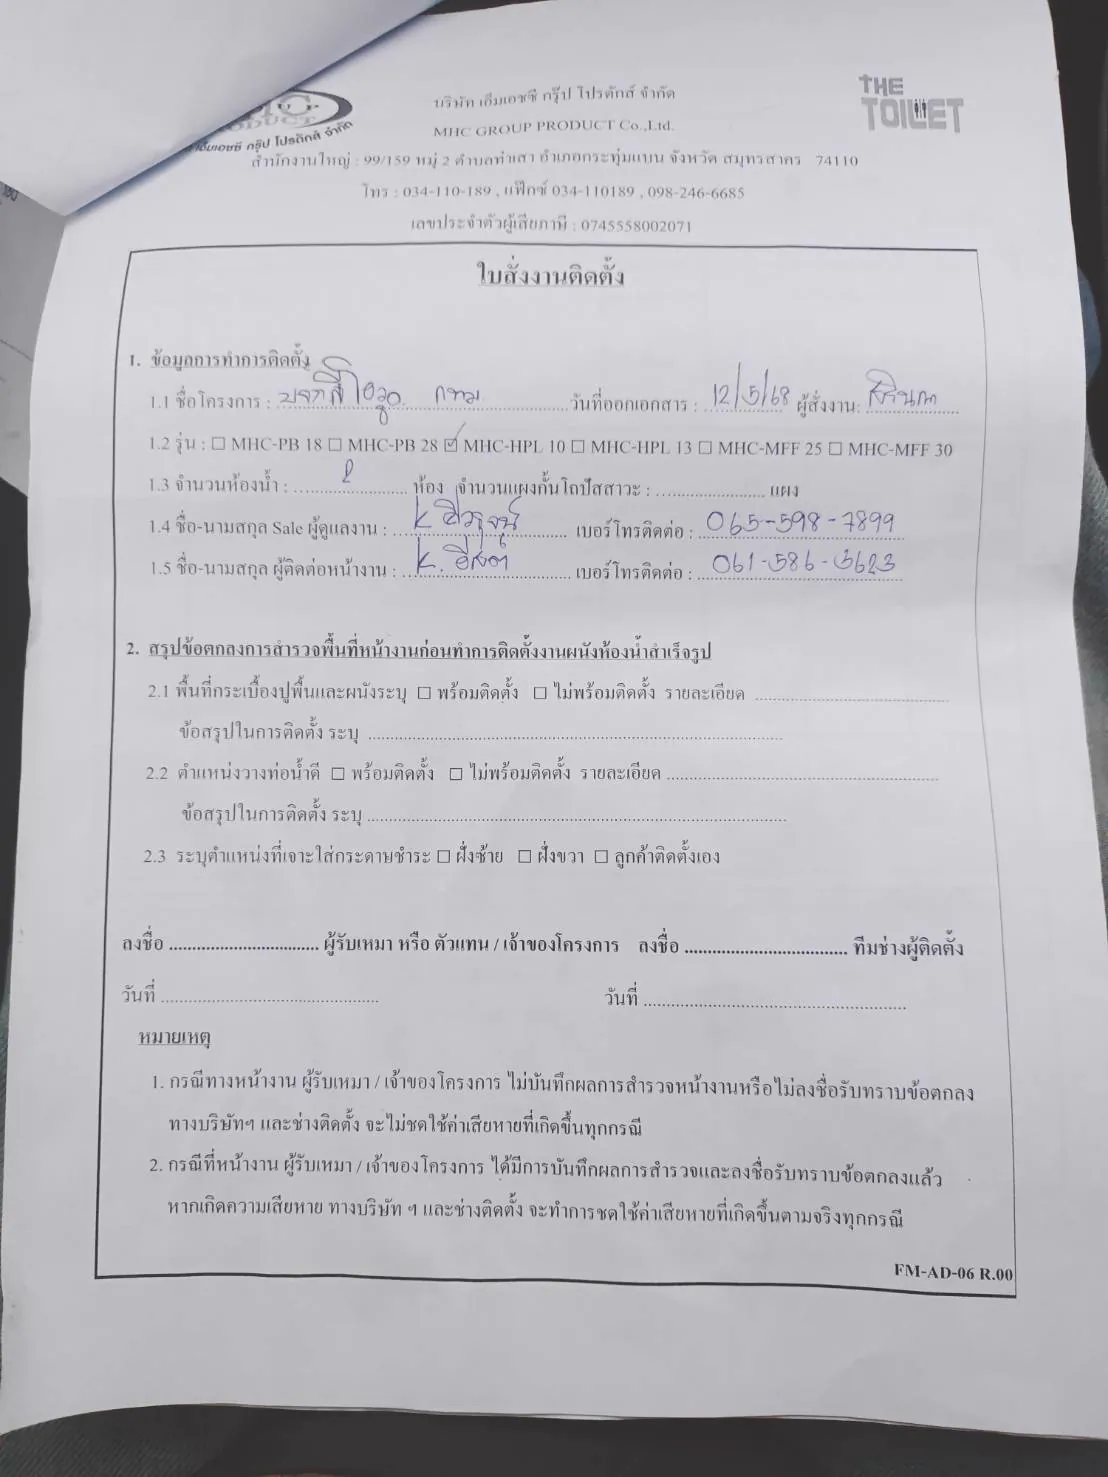 บริษัท เอ็มเอชซี กรุ๊ป โปรดักส์ จำกัด
THE TOILET
MHC GROUP PRODUCT Co.,Ltd.
สำนักงานใหญ่ : 99/159 หมู่ 2 ตำบลท่าเสา อำเภอกระทุ่มแบน จังหวัด สมุทรสาคร 74110
โทร : 034-110-189 , แฟ็กซ์ 034-110189 , 098-246-6685
เลขประจำตัวผู้เสียภาษี : 0745558002071
ใบสั่งงานติดตั้ง
1. ข้อมูลการทำการติดตั้ง
1.1 ชื่อโครงการ : กทม. วันที่ออกเอกสาร : 12/5/68 ผู้สั่งงาน:
1.2 รุ่น : ☐ MHC-PB 18 ☐ MHC-PB 28 ☑ MHC-HPL 10 ☐ MHC-HPL 13 ☐ MHC-MFF 25 ☐ MHC-MFF 30
1.3 จำนวนห้องน้ำ : 2 ห้อง จำนวนแผงกั้นโถปัสสาวะ : ........................ แผง
1.4 ชื่อ-นามสกุล Sale ผู้ดูแลงาน : K. เบอร์โทรติดต่อ : 065-598-7899
1.5 ชื่อ-นามสกุล ผู้ติดต่อหน้างาน : K. เบอร์โทรติดต่อ : 061-586-3623
2. สรุปข้อตกลงการสำรวจพื้นที่หน้างานก่อนทำการติดตั้งงานผนังห้องน้ำสำเร็จรูป
2.1 พื้นที่กระเบื้องปูพื้นและผนังระบุ ☐ พร้อมติดตั้ง ☐ ไม่พร้อมติดตั้ง รายละเอียด ........................
ข้อสรุปในการติดตั้ง ระบุ ........................
2.2 ตำแหน่งวางท่อน้ำดี ☐ พร้อมติดตั้ง ☐ ไม่พร้อมติดตั้ง รายละเอียด ........................
ข้อสรุปในการติดตั้ง ระบุ ........................
2.3 ระบุตำแหน่งที่เจาะใส่กระดาษชำระ ☐ ฝั่งซ้าย ☐ ฝั่งขวา ☐ ลูกค้าติดตั้งเอง
ลงชื่อ ........................ ผู้รับเหมา หรือ ตัวแทน / เจ้าของโครงการ ลงชื่อ ........................ ทีมช่างผู้ติดตั้ง
วันที่ ........................ วันที่ ........................
หมายเหตุ
1. กรณีทางหน้างาน ผู้รับเหมา / เจ้าของโครงการ ไม่บันทึกผลการสำรวจหน้างานหรือไม่ลงชื่อรับทราบข้อตกลง
ทางบริษัทฯ และช่างติดตั้ง จะไม่ชดใช้ค่าเสียหายที่เกิดขึ้นทุกกรณี
2. กรณีที่หน้างาน ผู้รับเหมา / เจ้าของโครงการ ได้มีการบันทึกผลการสำรวจและลงชื่อรับทราบข้อตกลงแล้ว
หากเกิดความเสียหาย ทางบริษัท ฯ และช่างติดตั้ง จะทำการชดใช้ค่าเสียหายที่เกิดขึ้นตามจริงทุกกรณี
FM-AD-06 R.00